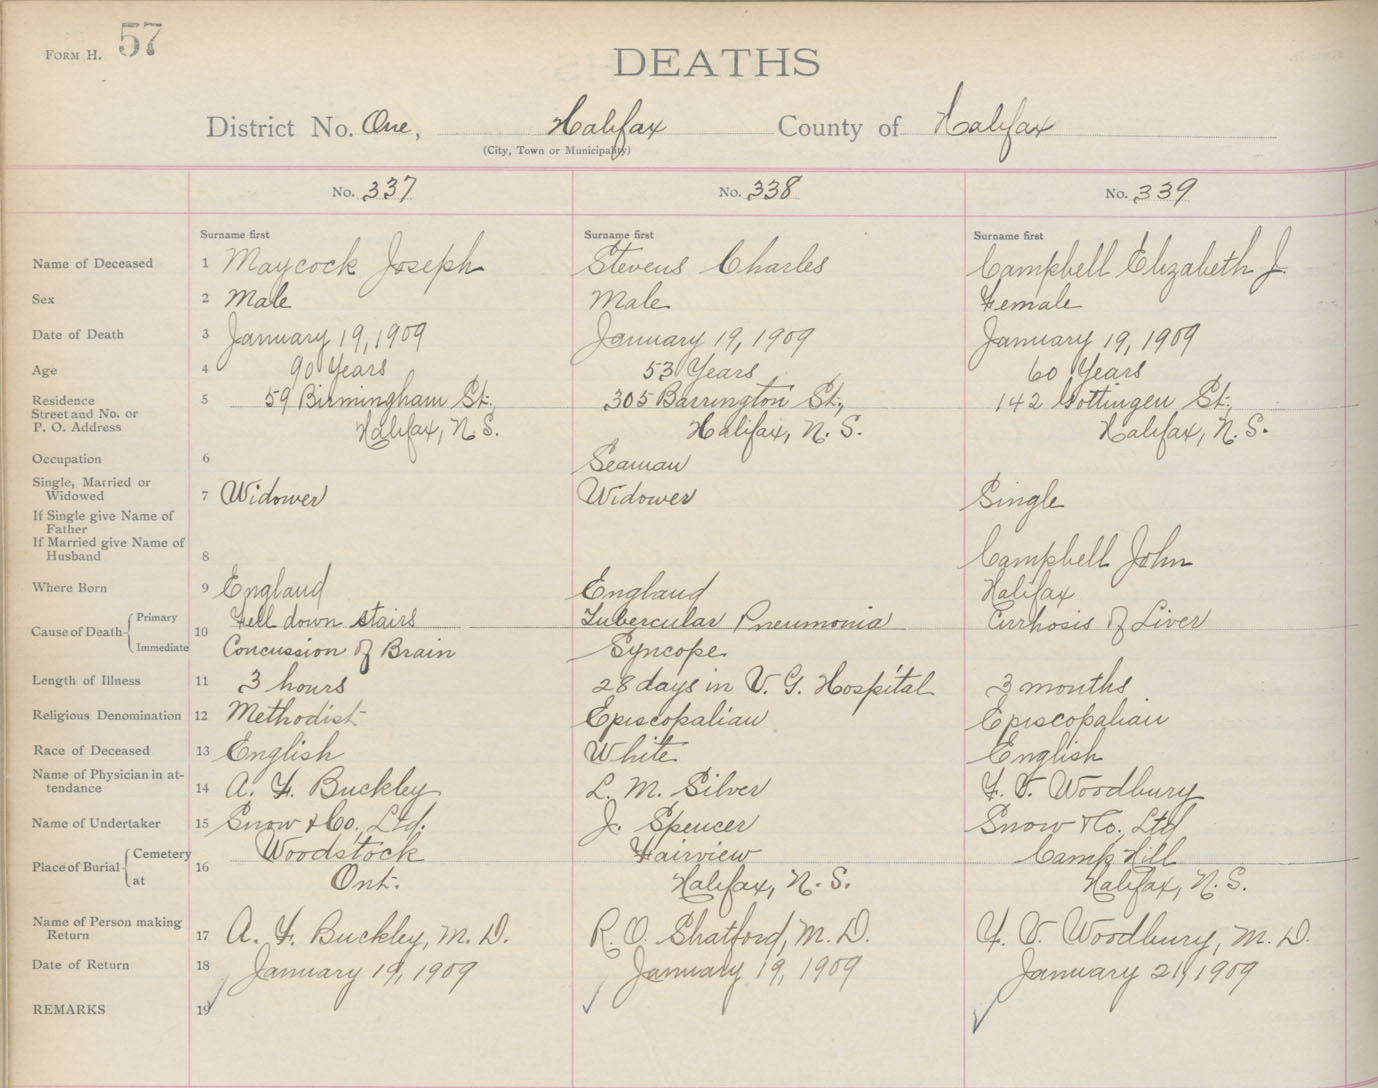 FORM H. 57
DEATHS
District No. One, Halifax County of Halifax
(City, Town or Municipality)
No. 337 No. 338 No. 339
Surname first Surname first Surname first
Name of Deceased 1 Maycock Joseph Stevens Charles Campbell Elizabeth J.
Sex 2 Male Male Female
Date of Death 3 January 19, 1909 January 19, 1909 January 19, 1909
Age 4 90 Years 53 Years 60 Years
Residence 5 59 Birmingham St., 305 Barrington St., 142 Gottingen St.,
Street and No. or
P. O. Address Halifax, N.S. Halifax, N.S. Halifax, N.S.
Occupation 6 Seaman
Single, Married or
Widowed 7 Widower Widower Single
If Single give Name of
Father
If Married give Name of
Husband 8 Campbell John
Where Born 9 England England Halifax
Cause of Death Primary 10 Fell down stairs Tubercular Pneumonia Cirrhosis of Liver
Immediate Concussion of Brain Syncope
Length of Illness 11 3 hours 28 days in V. G. Hospital 3 months
Religious Denomination 12 Methodist Episcopalian Episcopalian
Race of Deceased 13 English White English
Name of Physician in at-
tendance 14 A. F. Buckley L. M. Silver F. V. Woodbury
Name of Undertaker 15 Snow & Co., Ltd. J. Spencer Snow & Co., Ltd
Place of Burial Cemetery 16 Woodstock Fairview Camp Hill
at Ont. Halifax, N.S. Halifax, N.S.
Name of Person making
Return 17 A. F. Buckley, M.D. R. O. Shatford, M.D. F. V. Woodbury, M.D.
Date of Return 18 January 19, 1909 January 19, 1909 January 21, 1909
REMARKS 19